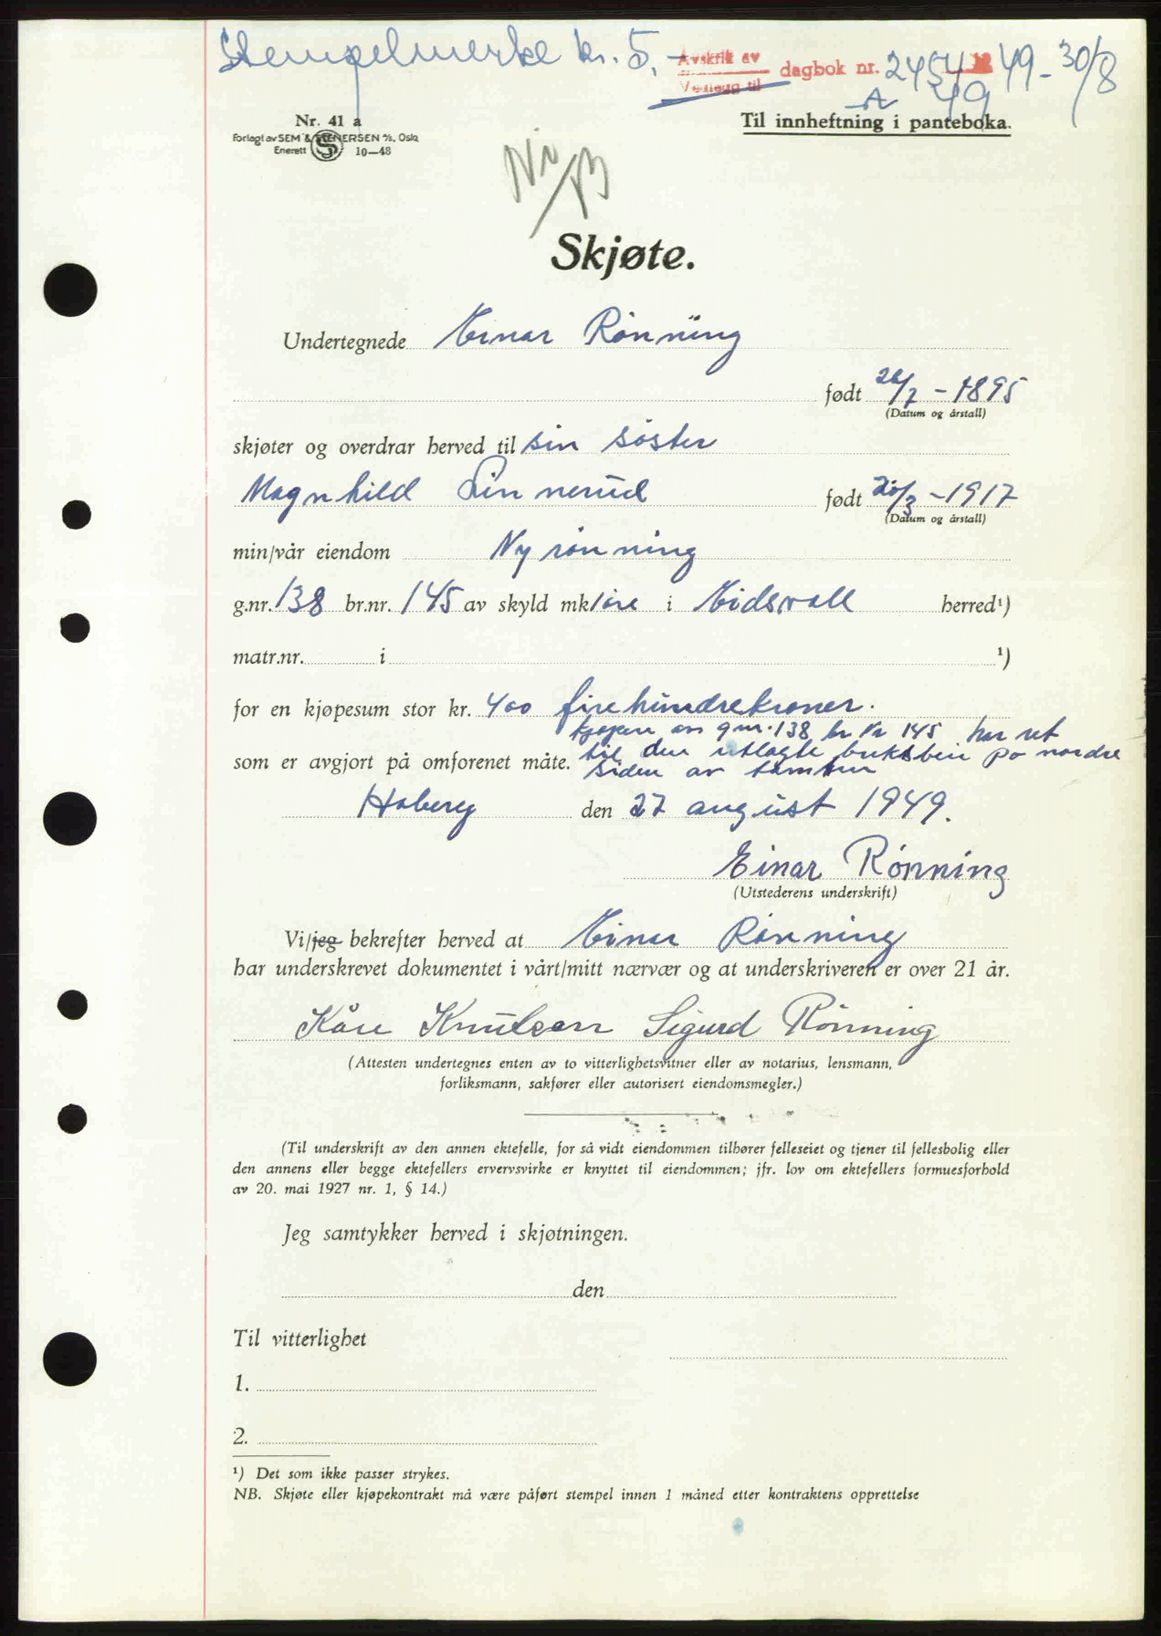 Stempelmerke kr. 5,-
Avskrift av
Vedlegg til
dagbok nr. 2454 49 - 30/8
A 49
Nr. 41 a
Forlagt av SEM & STENERSEN A/S, Oslo
Enerett 10-48
Til innheftning i panteboka.
Skjøte.
Undertegnede Einar Rønning
født /7 - 1895
(Datum og årstall)
skjøter og overdrar herved til sin søster
Magnhild Linnerud født 20/3 - 1917
(Datum og årstall)
min/vår eiendom Nyrønning
g.nr. 138 br.nr. 145 av skyld mk 1 øre i Eidsvoll herred¹)
matr.nr. i ¹)
for en kjøpesum stor kr. 400 firehundrekroner.
kjøperen av gnr. 138 br nr 145 har ret
som er avgjort på omforenet måte. til den utlagte på nordre
siden av tomten
Hoberg den 27 august 1949.
Einar Rønning
(Utstederens underskrift)
Vi/jeg bekrefter herved at Einar Rønning
har underskrevet dokumentet i vårt/mitt nærvær og at underskriveren er over 21 år.
Kåre Knutsen Sigurd Rønning
(Attesten undertegnes enten av to vitterlighetsvitner eller av notarius, lensmann,
forliksmann, sakfører eller autorisert eiendomsmegler.)
(Til underskrift av den annen ektefelle, for så vidt eiendommen tilhører felleseiet og tjener til fellesbolig eller
den annens eller begge ektefellers ervervsvirke er knyttet til eiendommen; jfr. lov om ektefellers formuesforhold
av 20. mai 1927 nr. 1, § 14.)
Jeg samtykker herved i skjøtningen.
den
Til vitterlighet
1.
2.
¹) Det som ikke passer strykes.
NB. Skjøte eller kjøpekontrakt må være påført stempel innen 1 måned etter kontraktens opprettelse